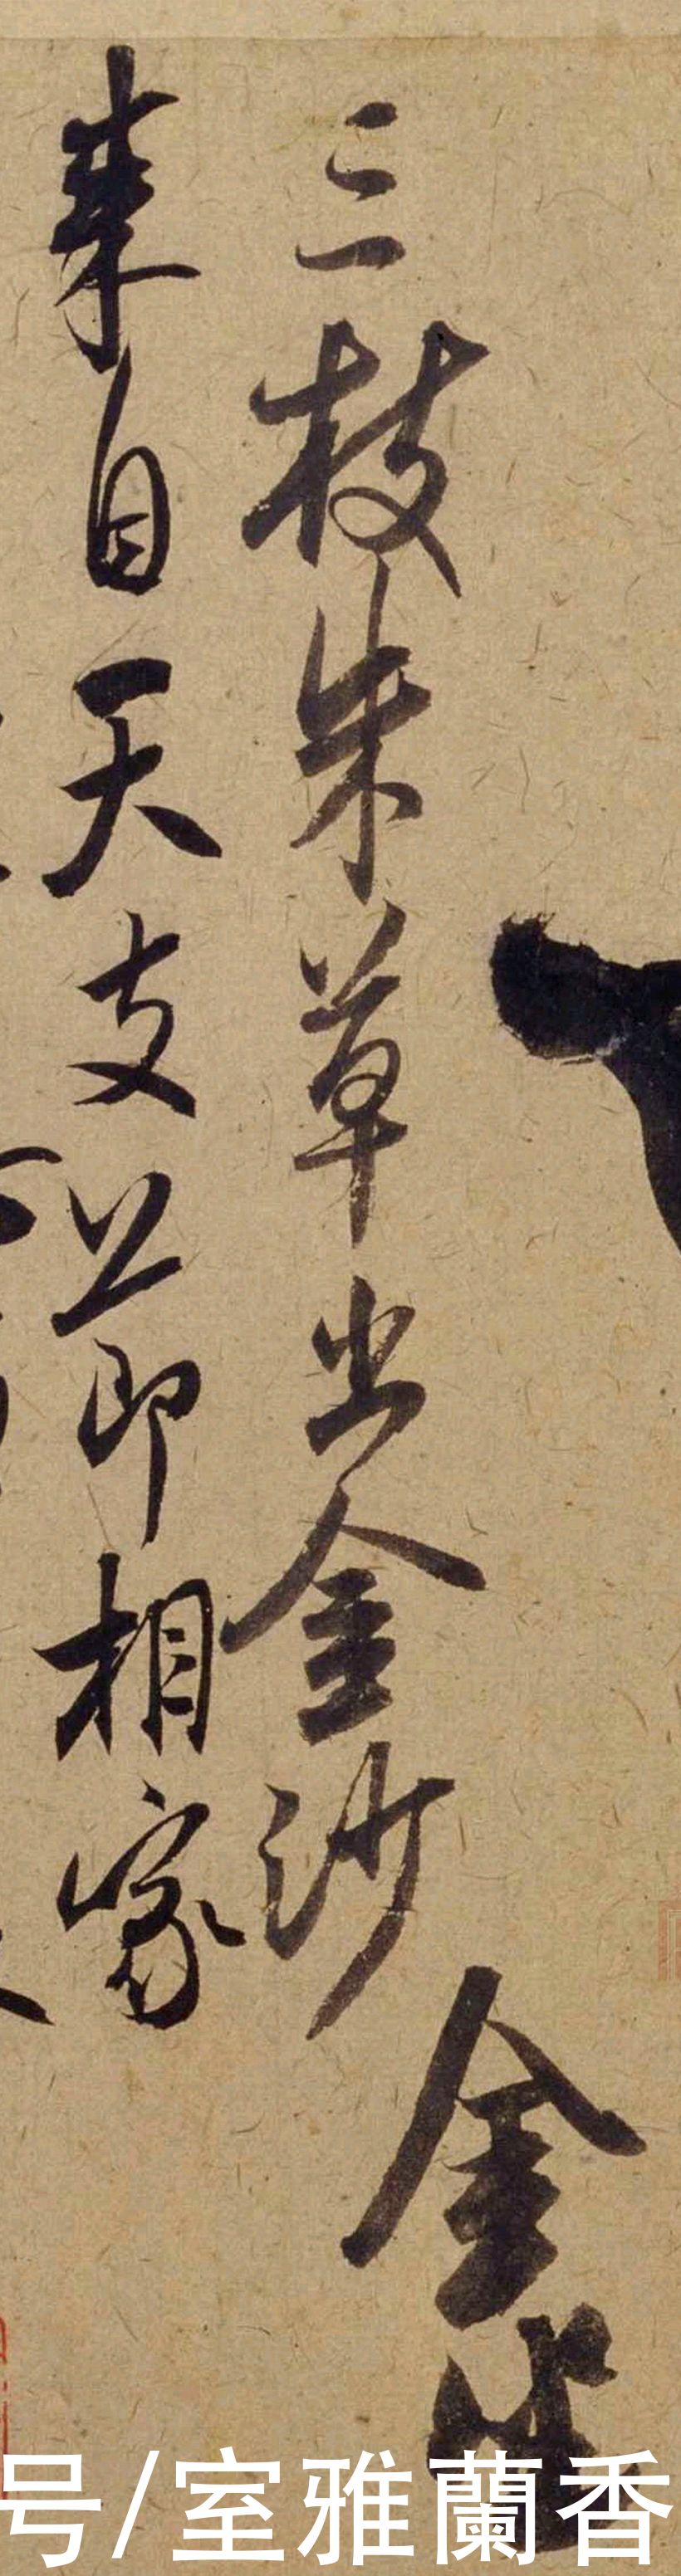 三枝朱草出金沙
來自天支節相家
金
号/室雅蘭香